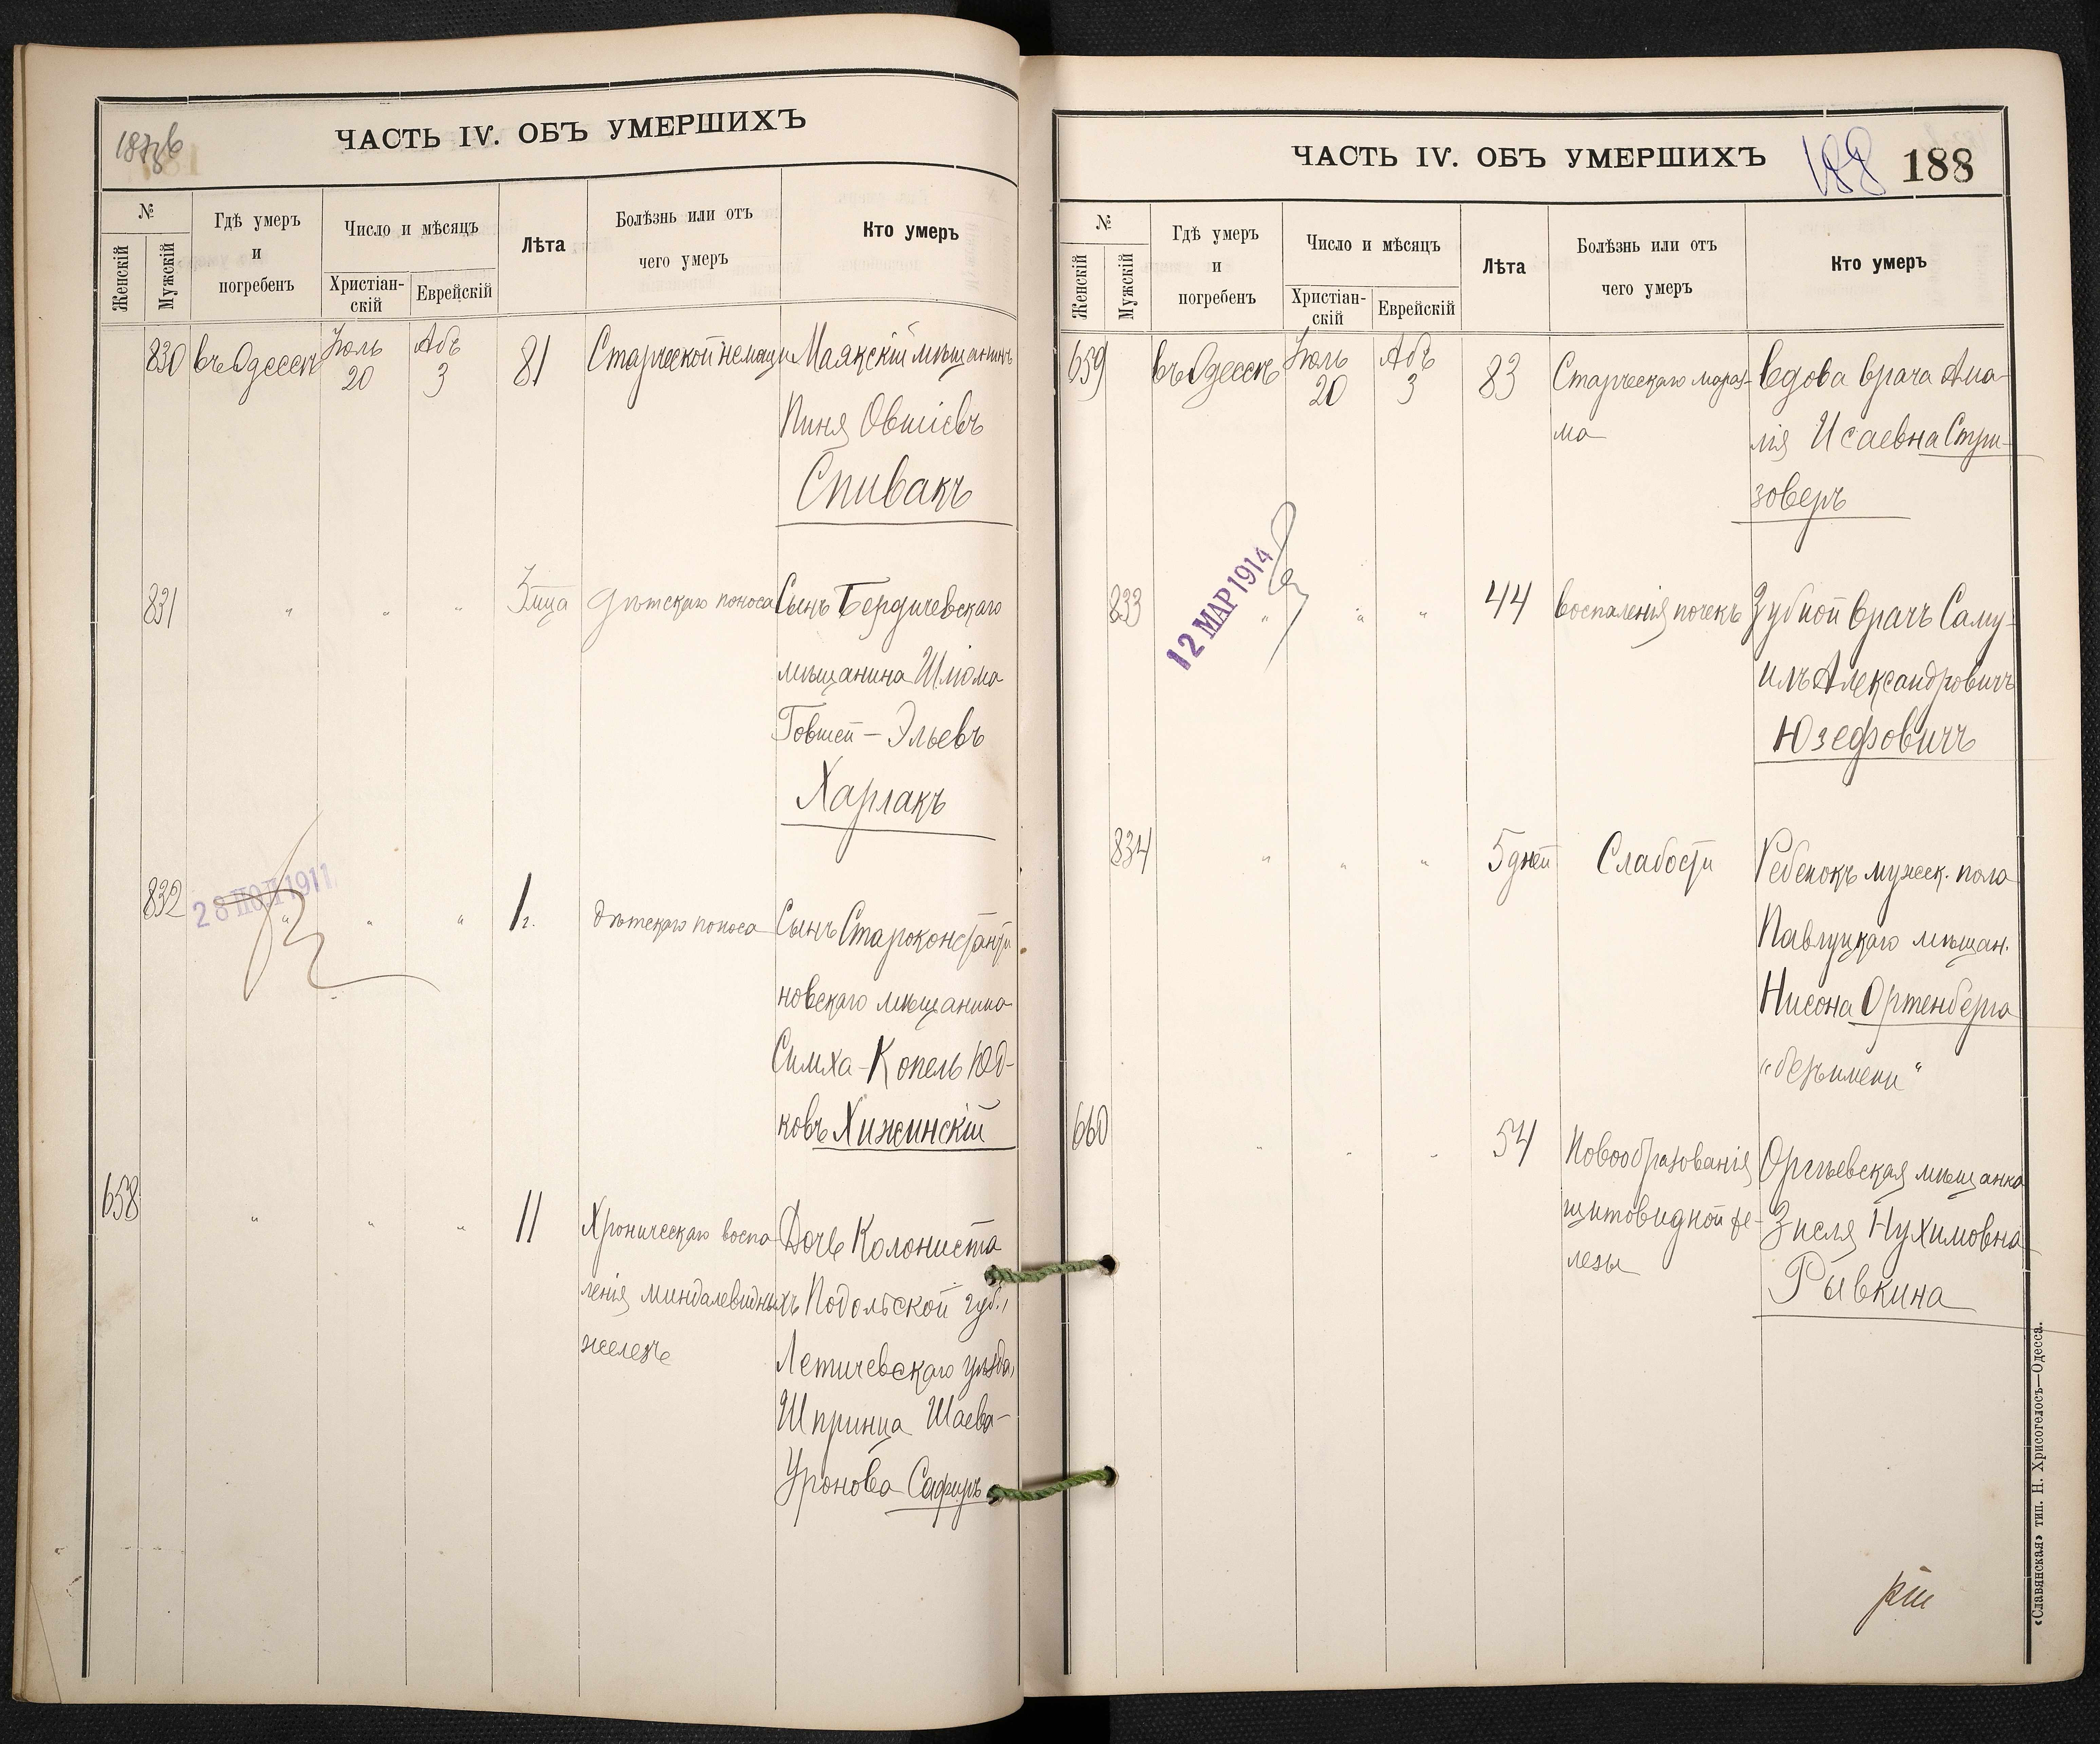 187 об
ЧАСТЬ IV. ОБЪ УМЕРШИХЪ
№
Женскій
Мужскій
Гдѣ умеръ
и
погребенъ
Число и мѣсяцъ
Христіан-
скій
Еврейскій
Лѣта
Болѣзнь или отъ
чего умеръ
Кто умеръ
830 въ Одессѣ Іюль 20 Абъ 3 81 Старческой немощи Маякскій мѣщанинъ
Пиня Овшіевъ
Спивакъ
831 " " " мца Дѣтскаго поноса Сынъ Бердичевскаго
мѣщанина Шлома
Говшей-Эльевъ
Харлакъ
28 1911
832 " " " 1 г. Дѣтскаго поноса Сынъ Староконстанти
новскаго мѣщанина
Симха-Копель Юд-
ковъ Хижинскій
658 " " " 11 Хроническаго воспа- Дочь Колониста
ленія миндалевидныхъ Подольской губ.,
железъ Летичевскаго уѣзда,
Шпринца Шаева-
Уронова Сафиръ
ЧАСТЬ IV. ОБЪ УМЕРШИХЪ
188 188
№
Женскій
Мужскій
Гдѣ умеръ
и
погребенъ
Число и мѣсяцъ
Христіан-
скій
Еврейскій
Лѣта
Болѣзнь или отъ
чего умеръ
Кто умеръ
659 въ Одессѣ Іюль 20 Абъ 3 83 Старческаго мараз- Вдова врача Ама-
ма лія Исаевна Стри-
зоверъ
12 МАР 1914
833 " " " 44 Воспаленія почекъ Зубной врачъ Саму-
илъ Александровичъ
Юзефовичъ
834 " " " 5 дней Слабости Ребенокъ мужск. пола
Павлуцкаго мѣщан.
Нисона Ортенберга
"безъ имени"
660 " " " 54 Новообразованія Оргѣевская мѣщанка
щитовидной же- Зисля Нухимовна
лезы Рывкина
«Славянская» тип. Н. Хрисогелосъ—Одесса.